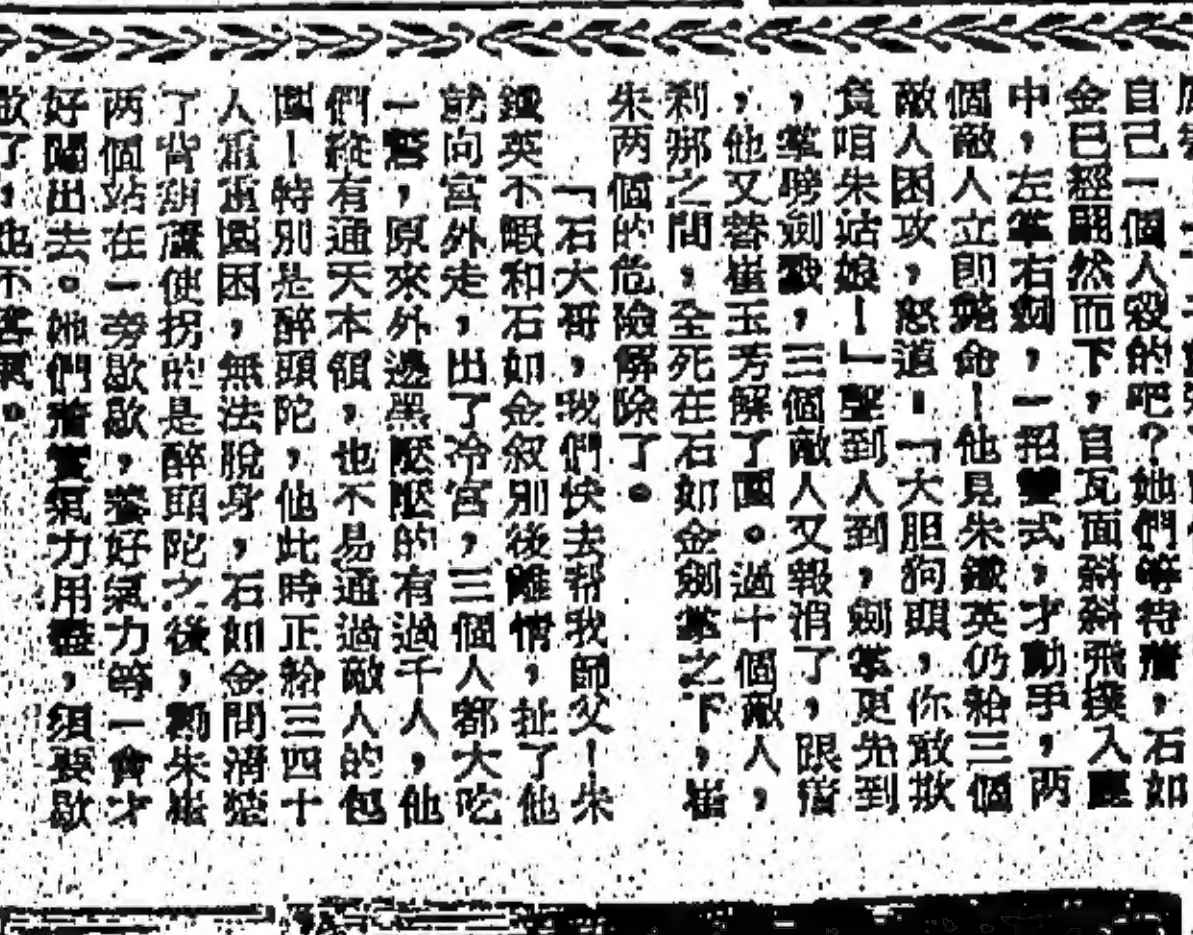 自己一個人殺的吧？她們等待着，石如
金已經翩然而下，自瓦面斜斜飛撲入廳
中，左掌右劍，一招雙式，才動手，两
個敵人立即斃命！他見朱鐵英仍給三個
敵人困攻，怒道：「大胆狗頭，你敢欺
負咱朱姑娘！」聲到人到，劍掌更先到
，掌劈劍戮，三個敵人又報消了，跟着
，他又替崔玉芳解了圍。過十個敵人，
刹那之間，全死在石如金劍掌之下，崔
朱两個的危險解除了。
「石大哥，我們快去帮我師父！朱
鐵英不暇和石如金叙別後離情，扯了他
就向宮外走，出了冷宮，三個人都大吃
一驚，原來外邊黑壓壓的有過千人，他
們縱有通天本領，也不易通過敵人的包
圍！特別是醉頭陀，他此時正給三四十
人重重圍困，無法脫身，石如金問清楚
了背葫蘆使拐的是醉頭陀之後，勸朱崔
两個站在一旁歇歇，養好氣力等一會才
好闖出去。她們着實氣力用盡，須要歇
歇了，也不客氣。